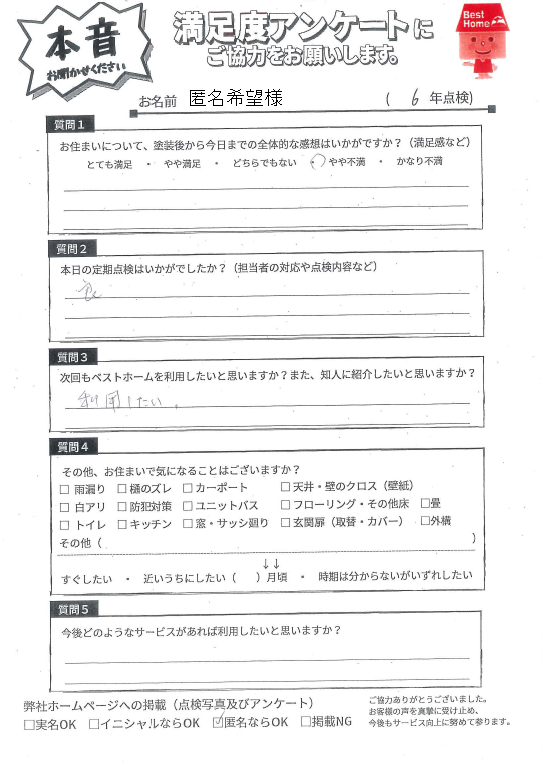 本音
お聞かせください
満足度アンケートに
ご協力をお願いします。
Best
Home
お名前 匿名希望様 ( 6 年点検)
質問1
お住まいについて、塗装後から今日までの全体的な感想はいかがですか？（満足度など）
とても満足 ・ やや満足 ・ どちらでもない ・ やや不満 ・ かなり不満
質問2
本日の定期点検はいかがでしたか？（担当者の対応や点検内容など）
良
質問3
次回もベストホームを利用したいと思いますか？また、知人に紹介したいと思いますか？
利用したい。
質問4
その他、お住まいで気になることはございますか？
□ 雨漏り □ 樋のズレ □ カーポート □ 天井・壁のクロス（壁紙）
□ 白アリ □ 防犯対策 □ ユニットバス □ フローリング・その他床 □畳
□ トイレ □ キッチン □ 窓・サッシ廻り □ 玄関扉（取替・カバー） □外構
その他（ ）
↓↓
すぐしたい ・ 近いうちにしたい（ ）月頃 ・ 時期は分からないがいずれしたい
質問5
今後どのようなサービスがあれば利用したいと思いますか？
弊社ホームページへの掲載（点検写真及びアンケート）
□実名OK □イニシャルならOK ☑匿名ならOK □掲載NG
ご協力ありがとうございました。
お客様の声を真摯に受け止め、
今後もサービス向上に努めて参ります。